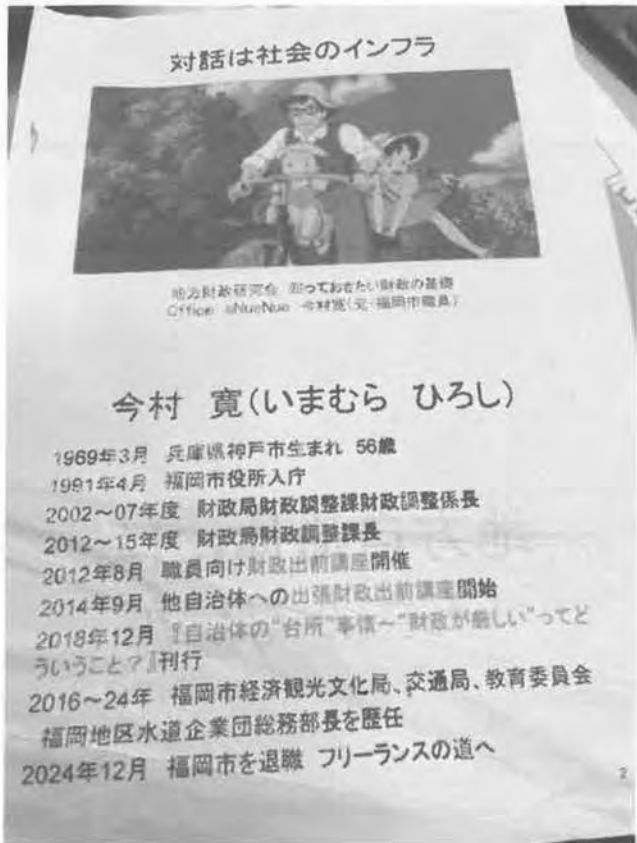 対話は社会のインフラ
地方財政研究会 知っておきたい財政の基礎
Office aNueNue 今村寛(元・福岡市職員)
今村 寛(いまむら ひろし)
1969年3月 兵庫県神戸市生まれ 56歳
1991年4月 福岡市役所入庁
2002~07年度 財政局財政調整課財政調整係長
2012~15年度 財政局財政調整課長
2012年8月 職員向け財政出前講座開催
2014年9月 他自治体への出張財政出前講座開始
2018年12月 『自治体の"台所"事情~"財政が厳しい"ってど
ういうこと?』刊行
2016~24年 福岡市経済観光文化局、交通局、教育委員会
福岡地区水道企業団総務部長を歴任
2024年12月 福岡市を退職 フリーランスの道へ
2